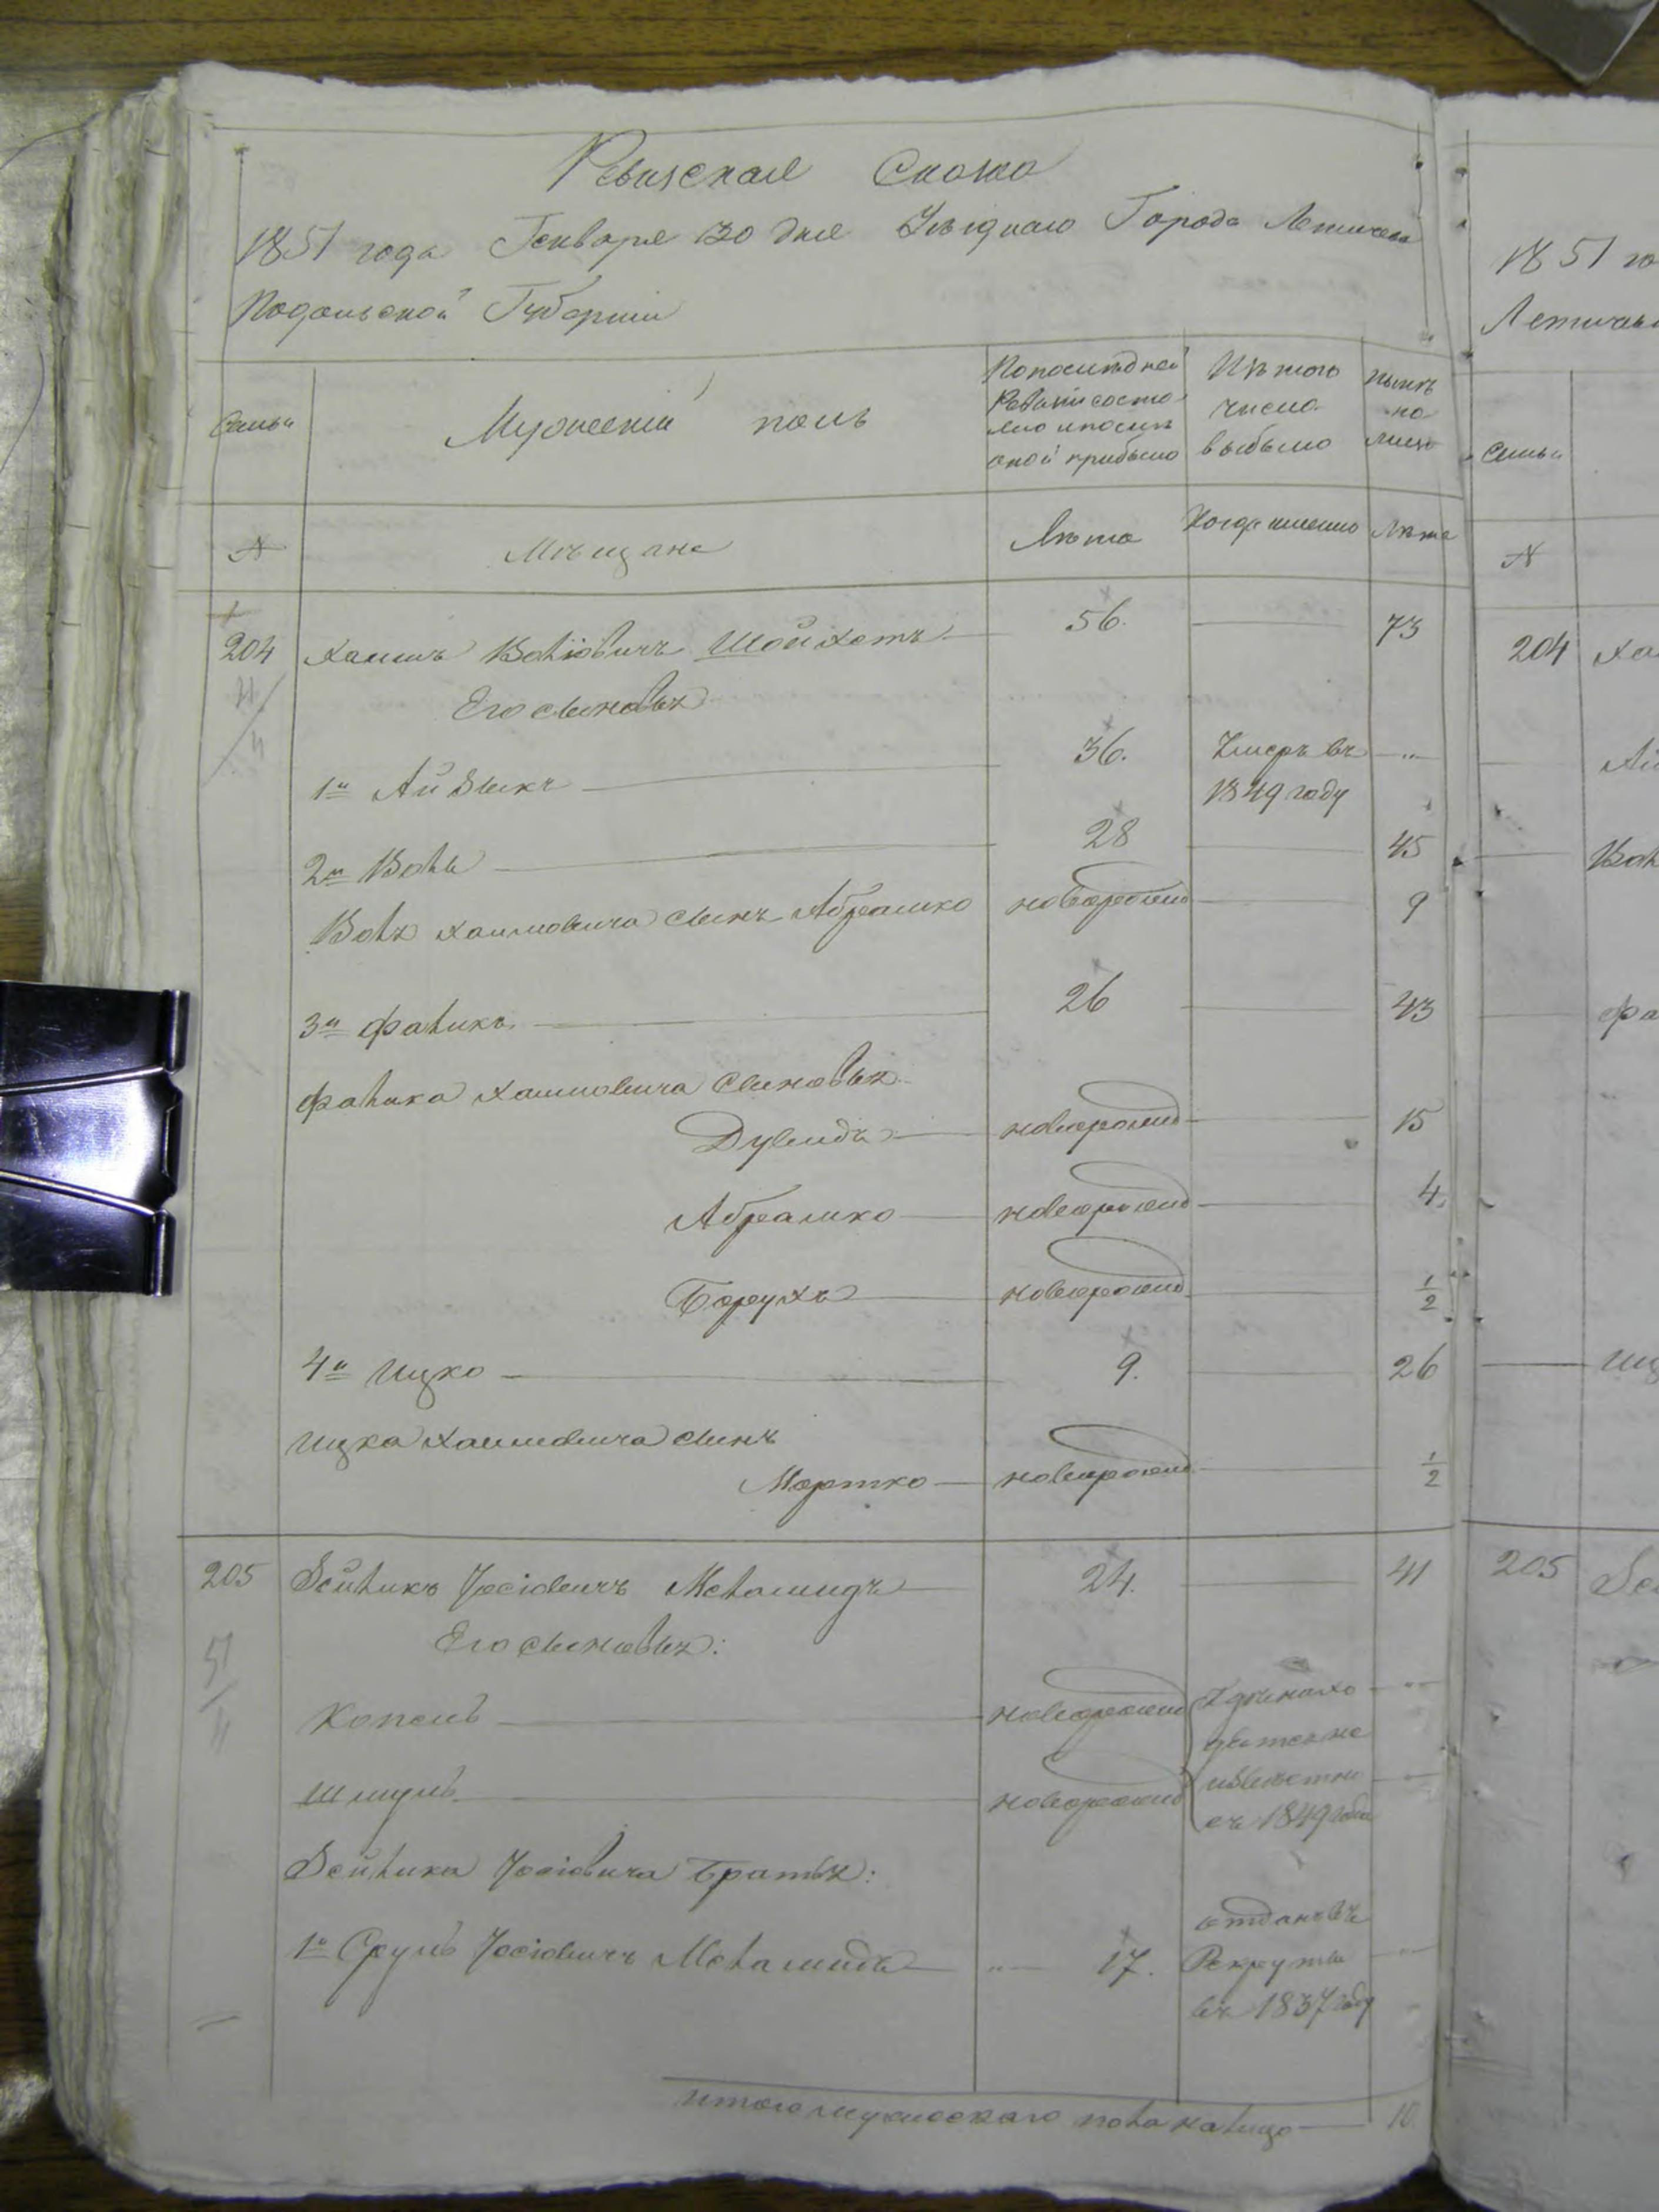 Ревизская Сказка
1851 года Генваря 30 дня Уѣзднаго Города Летичева
Подольской Губерніи
Семьи
Мужескій полъ
По последней
Ревизіи состо-
яло и после
оной прибыло
Изъ того
числа
выбыло
ныне
на-
лице
№
Мѣщане
Лѣта
Когда именно
Лѣта
204 Хаимъ Волiовичъ Шойхетъ 56. 73
Его сыновья
1й Айзыкъ 36. Умеръ въ
1849 году
2й Воль 28 45
Воля Хаимовича сынъ Абрамко новорожд 9
3й Фаликъ 26 43
Фалика Хаимовича сыновья
Дувидъ новорожд 15
Абрамко новорожд 4
Борухъ новорожд 1/2
4й Ицко 9. 26
Ицка Хаимовича сынъ
Мортко новорожд 1/2
205 Зейликъ Іосіовичъ Меламидъ 24. 41
Его сыновья:
Копель новорожд
Шмуль новорожд
гдѣ нахо
дятся не
извѣстно
съ 1849 года
Зейлика Іосіовича братья:
1й Сруль Іосіовичъ Меламидъ 17. отданъ въ
Рекруты
въ 1837 году
Итого мужескаго пола налицо 10
1851 го
Летичев
Семьи
№
204 Ха
Ай
Вол
Фа
Иц
205 Зе